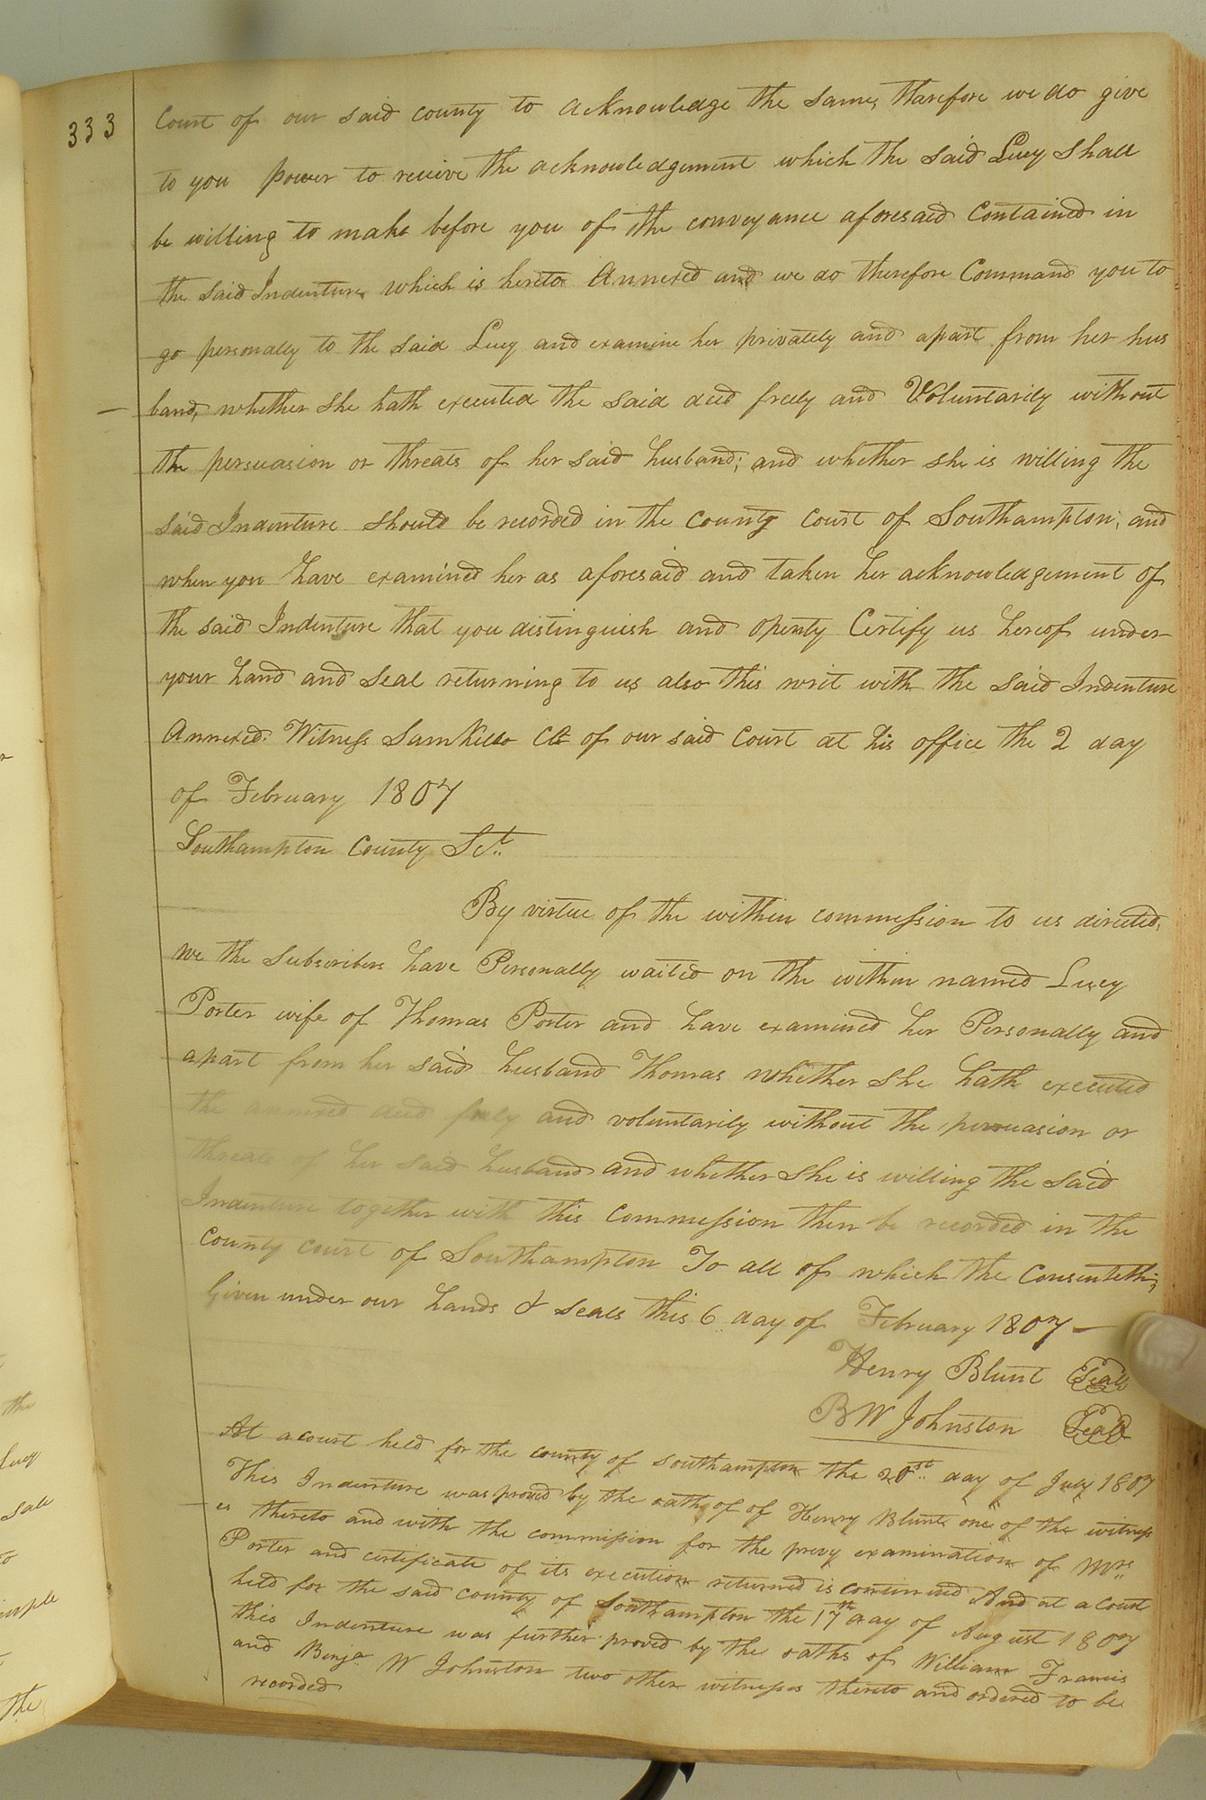 333
Court of our said county to acknowledge the same, therefore we do give
to you power to receive the acknowledgement which the said Lucy shall
be willing to make before you of the conveyance aforesaid Contained in
the said Indenture which is hereto Annexed and we do therefore Command you to
go personally to the said Lucy and examine her privately and apart from her hus
band, whether she hath executed the said deed freely and Voluntarily without
the persuasion or threats of her said husband; and whether she is willing the
said Indenture should be recorded in the county court of Southampton; and
when you have examined her as aforesaid and taken her acknowledgement of
the said Indenture that you distinguish and openly Certify us hereof under
your hand and seal returning to us also this writ with the said Indenture
Annexed. Witness Sam Kello Clk of our said Court at his office the 2 day
of February 1807
Southampton County Sct.
By virtue of the within commission to us directed,
we the subscribers have Personally waited on the within named Lucy
Porter wife of Thomas Porter and have examined her Personally and
apart from her said husband Thomas whether she hath executed
the annexed deed freely and voluntarily without the persuasion or
threats of her said husband and whether she is willing the said
Indenture together with this Commission then be recorded in the
County court of Southampton To all of which the Consenteth;
Given under our hands & seals this 6 day of February 1807 —
Henry Blunt Seal
B W Johnston Seal
At a court held for the county of Southampton the 20th day of July 1807
This Indenture was proved by the oath of of Henry Blunt one of the witness
es thereto and with the commission for the privy examination of Mrs.
Porter and certificate of its execution returned is continued And at a Court
held for the said county of Southampton the 17th day of August 1807
this Indenture was further proved by the oaths of William Francis
and Benja W Johnston two other witnesses thereto and ordered to be
recorded
the
Lucy
sale
to
the